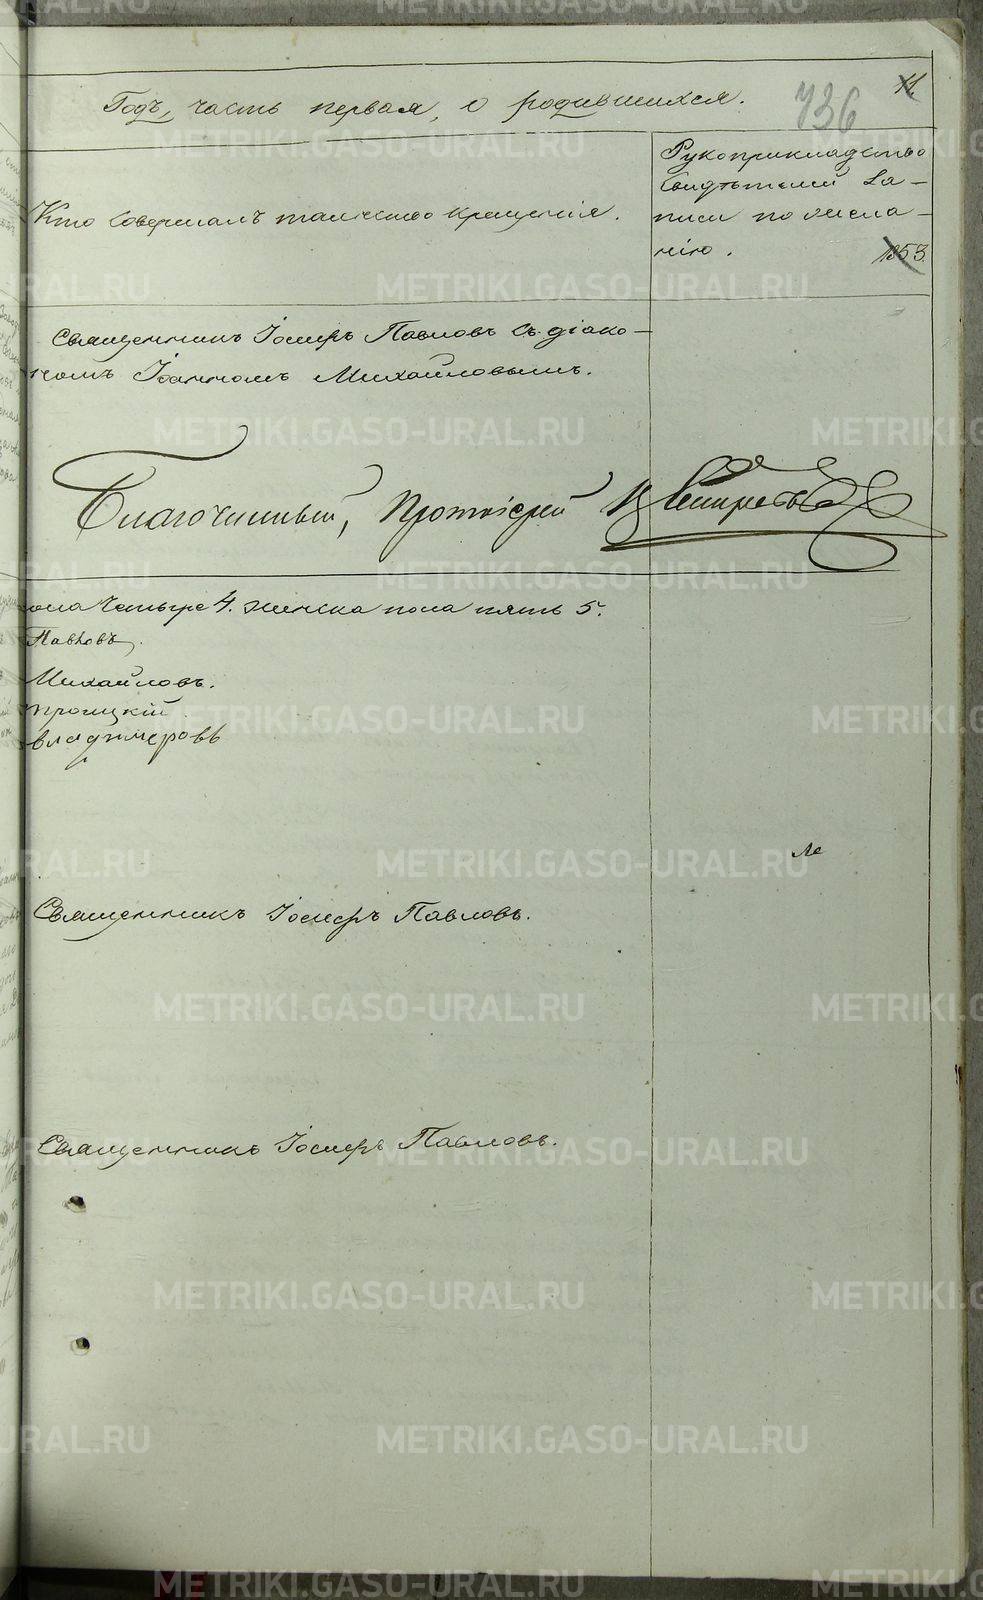 Годъ, часть первая, о родившихся.
736
11.
Кто совершалъ таинство крещенія.
Рукоприкладство
свидѣтелей за-
писи по жела-
нію.
1353.
Священникъ Іосифъ Павловъ съ діако-
номъ Іоанномъ Михайловымъ.
Благочинный, Протоіерей
пола четыре 4. женска пола пять 5.
Павловъ.
Михайловъ.
Троицкій
Владимеровъ
Священникъ Іосифъ Павловъ.
Священникъ Іосифъ Павловъ.
METRIKI.GASO-URAL.RU